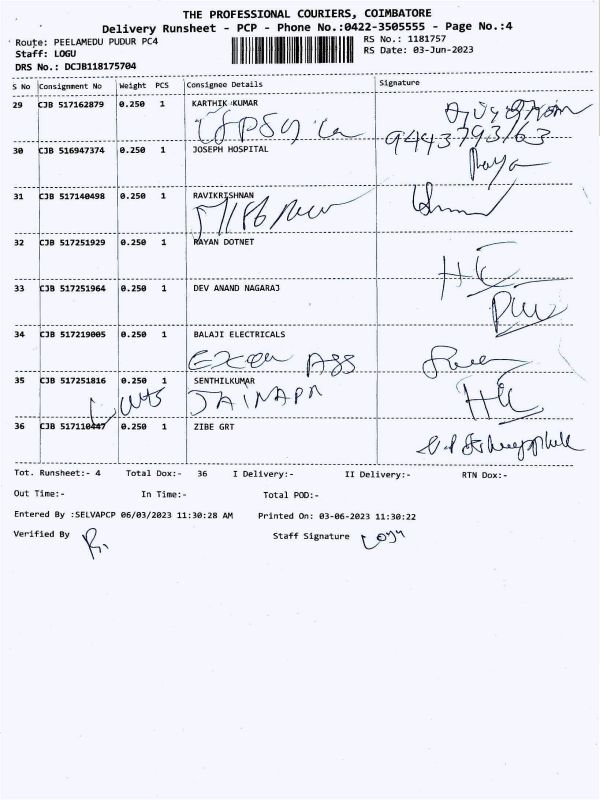 THE PROFESSIONAL COURIERS, COIMBATORE
Delivery Runsheet - PCP - Phone No.:0422-3505555 - Page No.:4
Route: PEELAMEDU PUDUR PC4
RS No.: 1181757
Staff: LOGU
RS Date: 03-Jun-2023
DRS No.: DCJB118175704
S No Consignment No Weight PCS Consignee Details Signature
29 CJB 517162879 0.250 1 KARTHIK KUMAR
9443793163
30 CJB 516947374 0.250 1 JOSEPH HOSPITAL
31 CJB 517140498 0.250 1 RAVIKRISHNAN
32 CJB 517251929 0.250 1 RAYAN DOTNET
33 CJB 517251964 0.250 1 DEV ANAND NAGARAJ
34 CJB 517219005 0.250 1 BALAJI ELECTRICALS
35 CJB 517251816 0.250 1 SENTHILKUMAR
36 CJB 517110447 0.250 1 ZIBE GRT
Tot. Runsheet:- 4 Total Dox:- 36 I Delivery:- II Delivery:- RTN Dox:-
Out Time:- In Time:- Total POD:-
Entered By :SELVAPCP 06/03/2023 11:30:28 AM Printed On: 03-06-2023 11:30:22
Verified By Staff Signature Logu